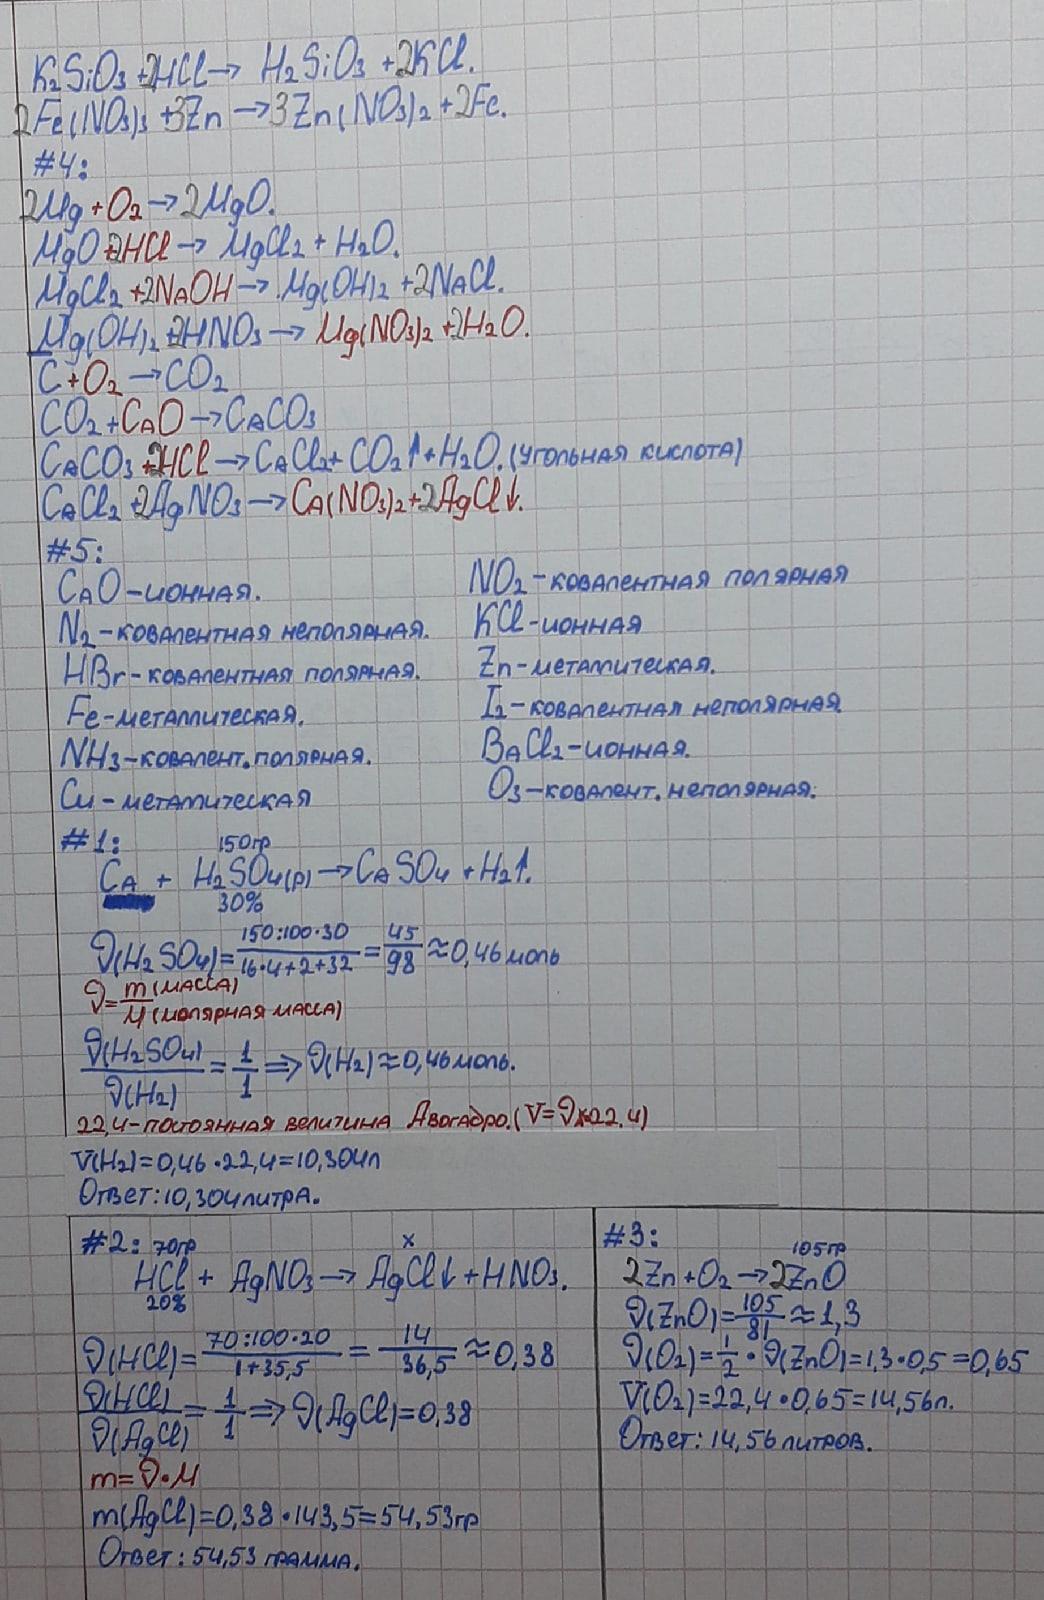 K2SiO3 + 2HCl → H2SiO3 + 2KCl.
2Fe(NO3)3 + 3Zn → 3Zn(NO3)2 + 2Fe.
#4:
2Mg + O2 → 2MgO.
MgO + 2HCl → MgCl2 + H2O.
MgCl2 + 2NaOH → Mg(OH)2 + 2NaCl.
Mg(OH)2 + 2HNO3 → Mg(NO3)2 + 2H2O.
C + O2 → CO2
CO2 + CaO → CaCO3
CaCO3 + 2HCl → CaCl2 + CO2↑ + H2O. (угольная кислота)
CaCl2 + 2AgNO3 → Ca(NO3)2 + 2AgCl↓.
#5:
CaO - ионная.
N2 - ковалентная неполярная.
HBr - ковалентная полярная.
Fe - металлическая.
NH3 - ковалент. полярная.
Cu - металлическая
NO2 - ковалентная полярная
KCl - ионная
Zn - металлическая.
I2 - ковалентная неполярная.
BaCl2 - ионная.
O3 - ковалент. неполярная.
#1:
150гр
Ca + H2SO4(р) → CaSO4 + H2↑.
30%
ν(H2SO4) = 150:100·30 / 16·4+2+32 = 45/98 ≈ 0,46 моль
ν = m (масса) / M (молярная масса)
ν(H2SO4) / ν(H2) = 1/1 ⇒ ν(H2) ≈ 0,46 моль.
22,4 - постоянная величина Авогадро. (V = ν × 22,4)
V(H2) = 0,46 · 22,4 = 10,304л
Ответ: 10,304 литра.
#2: 70гр x
HCl + AgNO3 → AgCl↓ + HNO3.
20%
ν(HCl) = 70:100·20 / 1+35,5 = 14 / 36,5 ≈ 0,38
ν(HCl) / ν(AgCl) = 1/1 ⇒ ν(AgCl) = 0,38
m = ν · M
m(AgCl) = 0,38 · 143,5 = 54,53гр
Ответ: 54,53 грамма.
#3:
105гр
2Zn + O2 → 2ZnO
ν(ZnO) = 105/81 ≈ 1,3
ν(O2) = 1/2 · ν(ZnO) = 1,3 · 0,5 = 0,65
V(O2) = 22,4 · 0,65 = 14,56л.
Ответ: 14,56 литров.